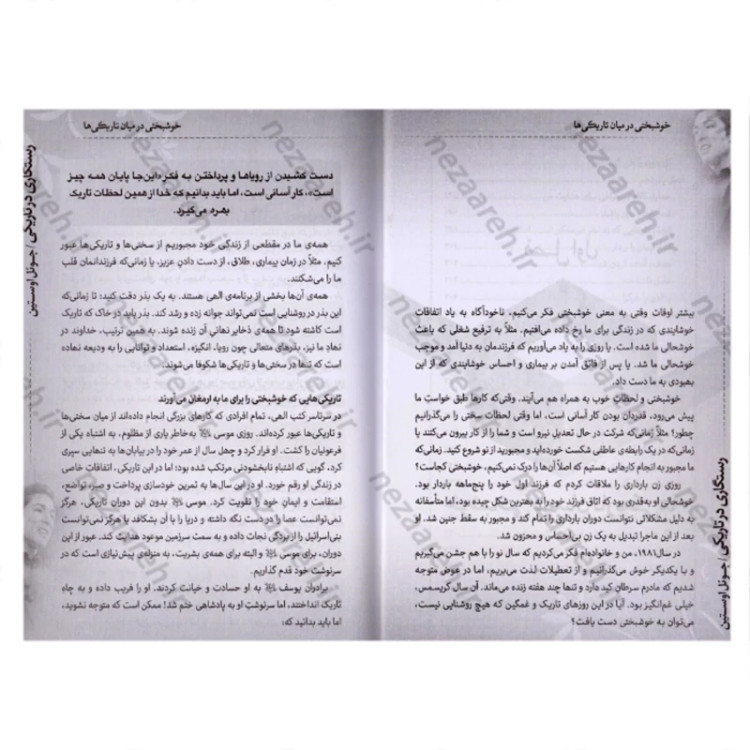 خوشبختی در میان تاریکی‌ها
فصل اول
بیشتر اوقات وقتی به معنی خوشبختی فکر می‌کنیم، ناخودآگاه به یاد اتفاقات
خوشایندی که در زندگی برای ما رخ داده می‌افتیم. مثلاً به ترفیع شغلی که باعث
خوشحالی ما شد. یا روزی را به یاد می‌آوریم که فرزندمان به دنیا آمد و موجب
خوشحالی ما شد. یا پس از فائق آمدن بر بیماری و احساس خوشایندی که از این
بهبودی به ما دست داد.
خوشبختی و لحظات خوب به همراه هم می‌آیند. وقتی‌که کارها طبق خواستِ ما
پیش می‌رود، قدردان بودن کار آسانی است، اما وقتی لحظات سختی را می‌گذرانیم
چطور؟ مثلاً زمانی‌که شرکت در حال تعدیل نیرو است و شما را از کار بیرون می‌کنند یا
زمانی‌که در یک رابطه‌ی عاطفی شکست خورده‌اید و مجبورید از نو شروع کنید. زمانی‌که
ما مجبور به انجام کارهایی هستیم که اصلاً آن‌ها را درک نمی‌کنیم، خوشبختی کجاست؟
روزی زن بارداری را ملاقات کردم که فرزند اول خود را پنج‌ماهه باردار بود.
خوشحالی او به‌قدری بود که اتاق فرزند خود را به بهترین شکل چیده بود، اما متأسفانه
به دلیل مشکلاتی نتوانست دوران بارداری را تمام کند و مجبور به سقط جنین شد. او
بعد از این ماجرا تبدیل به یک زن بی‌احساس و محزون شد.
در سال ۱۹۸۱، من و خانواده‌ام فکر می‌کردیم که سال نو را با هم جشن می‌گیریم
و با یکدیگر خوش می‌گذرانیم و از تعطیلات لذت می‌بریم، اما در عوض متوجه
شدیم که مادرم سرطان کبد دارد و تنها چند هفته زنده می‌ماند. آن سال کریسمس،
خیلی غم‌انگیز بود. آیا در این روزهای تاریک و غمگین که هیچ روشنایی نیست،
می‌توان به خوشبختی دست یافت؟
رستگاری در تاریکی / جوئل اوستین
خوشبختی در میان تاریکی‌ها
دست کشیدن از رویاها و پرداختن به فکر «این‌جا پایان همه چیز
است»، کار آسانی است، اما باید بدانیم که خدا از همین لحظات تاریک
بهره می‌گیرد.
همه‌ی ما در مقطعی از زندگی خود مجبوریم از سختی‌ها و تاریکی‌ها عبور
کنیم. مثلاً در زمان بیماری، طلاق، از دست دادنِ عزیز، یا زمانی‌که فرزندانمان قلب
ما را می‌شکنند.
همه‌ی آن‌ها بخشی از برنامه‌ی الهی هستند. به یک بذر دقت کنید؛ تا زمانی‌که
این بذر در روشنایی است نمی‌تواند جوانه زده و رشد کند. بذر باید در خاک که تاریک
است کاشته شود تا همه‌ی ذخایر نهانیِ آن زنده شوند. به همین ترتیب، خداوند در
نهادِ ما نیز، بذرهای متعالی چون رویا، انگیزه، استعداد و توانایی را به ودیعه نهاده
است که تنها در سختی‌ها و تاریکی‌ها شکوفا می‌شوند.
تاریکی‌هایی که خوشبختی را برای ما به ارمغان می‌آورند
در سرتاسر کتب الهی، تمام افرادی که کارهای بزرگی انجام داده‌اند از میان سختی‌ها
و تاریکی‌ها عبور کرده‌اند. روزی موسی به‌خاطر یاری از مظلوم، به اشتباه یکی از
فرعونیان را کشت. او فرار کرد و چهل سال از عمر خود را در بیابان‌ها به تنهایی سپری
کرد، گویی که اشتباهِ نابخشودنی مرتکب شده بود؛ اما در این تاریکی، اتفاقات خاصی
در زندگی او رقم خورد. او در این سال‌ها به تمرین خودسازی پرداخت و صبر، تواضع،
استقامت و ایمانِ خود را تقویت کرد. موسی بدون این دوران تاریکی، هرگز
نمی‌توانست عصا را در دست نگه داشته و دریا را با آن بشکافد یا هرگز نمی‌توانست
بنی‌اسرائیل را از بردگی نجات داده و به سمت سرزمین موعود هدایت کند. عبور از این
دوران، برای موسی و البته برای همه‌ی بشریت، به منزله‌ی پیش‌نیازی است که در
سرنوشت خود قدم گذاریم.
برادران یوسف به او حسادت و خیانت کردند. او را فریب داده و به چاهِ
تاریک انداختند، اما سرنوشتِ او به پادشاهی ختم شد! ممکن است که متوجه نشوید،
اما باید بدانید که:
رستگاری در تاریکی / جوئل اوستین
nezaareh.ir